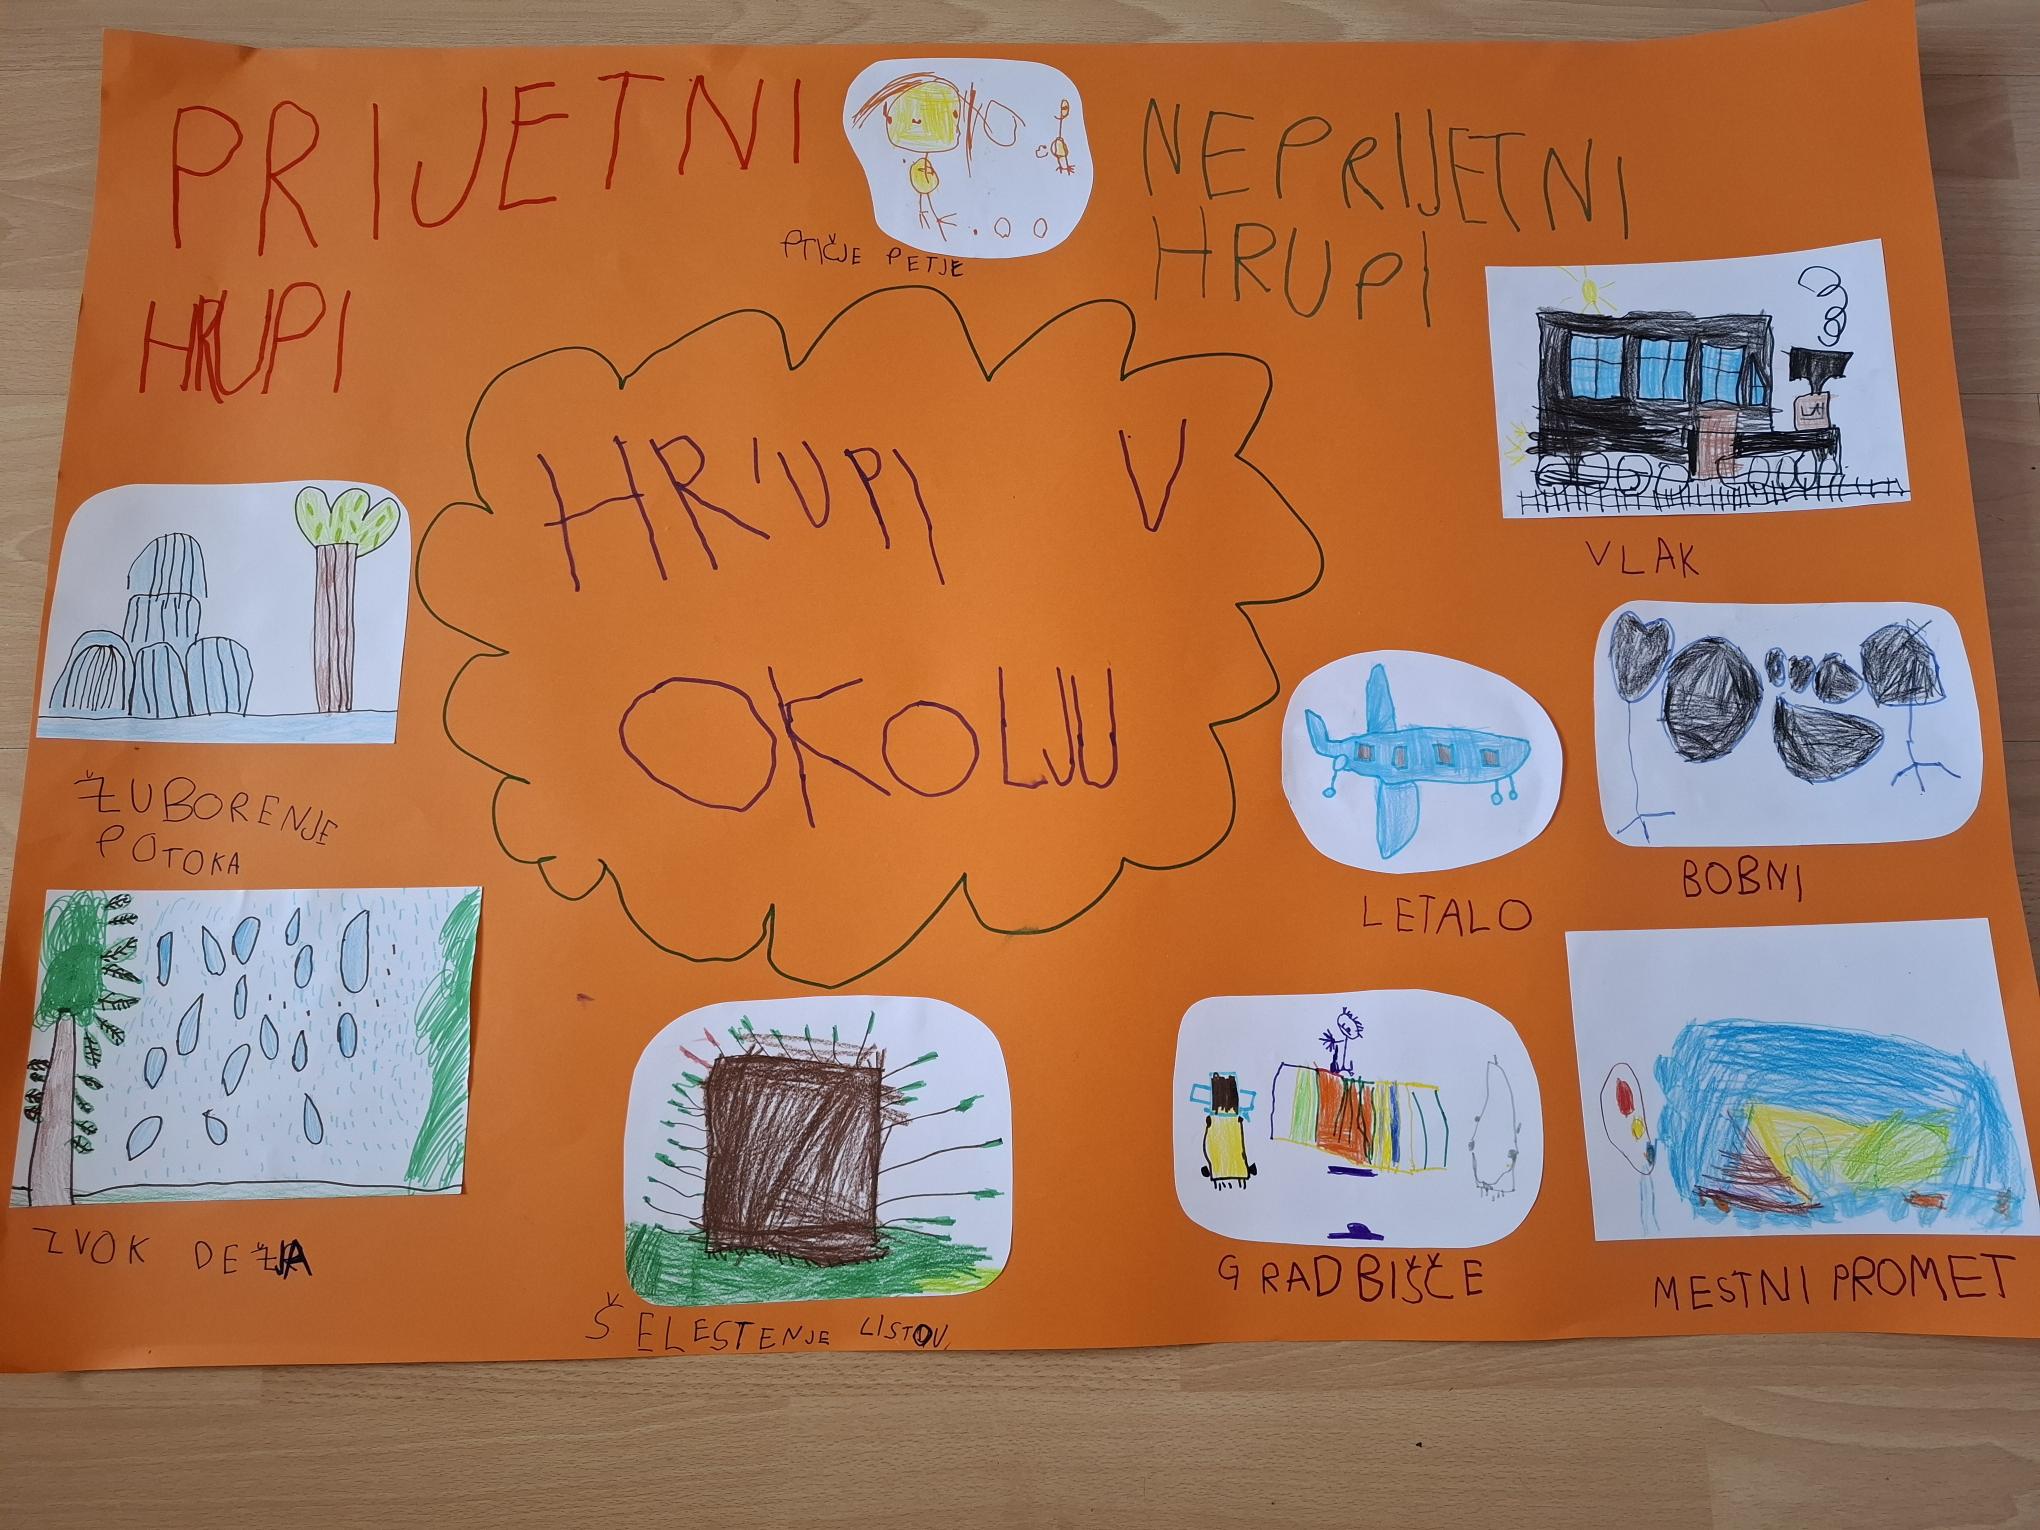 PRIJETNI
HRUPI
PTIČJE PETJE
NEPRIJETNI
HRUPI
HRUPI V
OKOLJU
VLAK
ŽUBORENJE
POTOKA
LETALO
BOBNI
ZVOK DEŽJA
ŠELESTENJE LISTOV
GRADBIŠČE
MESTNI PROMET